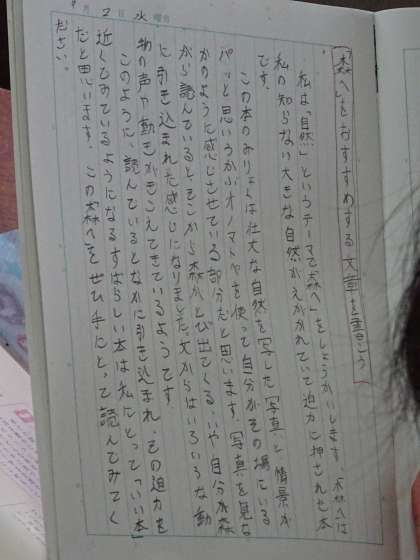 9月 2日 水曜日
「森へ」をおすすめする文章を書こう
私は「自然」というテーマで「森へ」をしょうかいします。「森へ」は
私の知らない大きな自然がえがかれていて迫力に押された本
です。
この本のみりょくは壮大な自然を写した「写真」と情景が
パッと思いうかぶオノマトペを使って自分がその場にいる
かのように感じさせている部分だと思います。写真を見な
がら読んでいるとそこから森がとび出てくる、いや自分が森
に引き込まれた感じになりました。文からはいろいろな動
物の声や動きがきこえてきているようです。
このように、読んでいるとなかに引き込まれ、その迫力を
近くでみているようになるすばらしい本は私にとって「いい本」
だと思います。この「森へ」をぜひ手にとって読んでみてく
ださい。